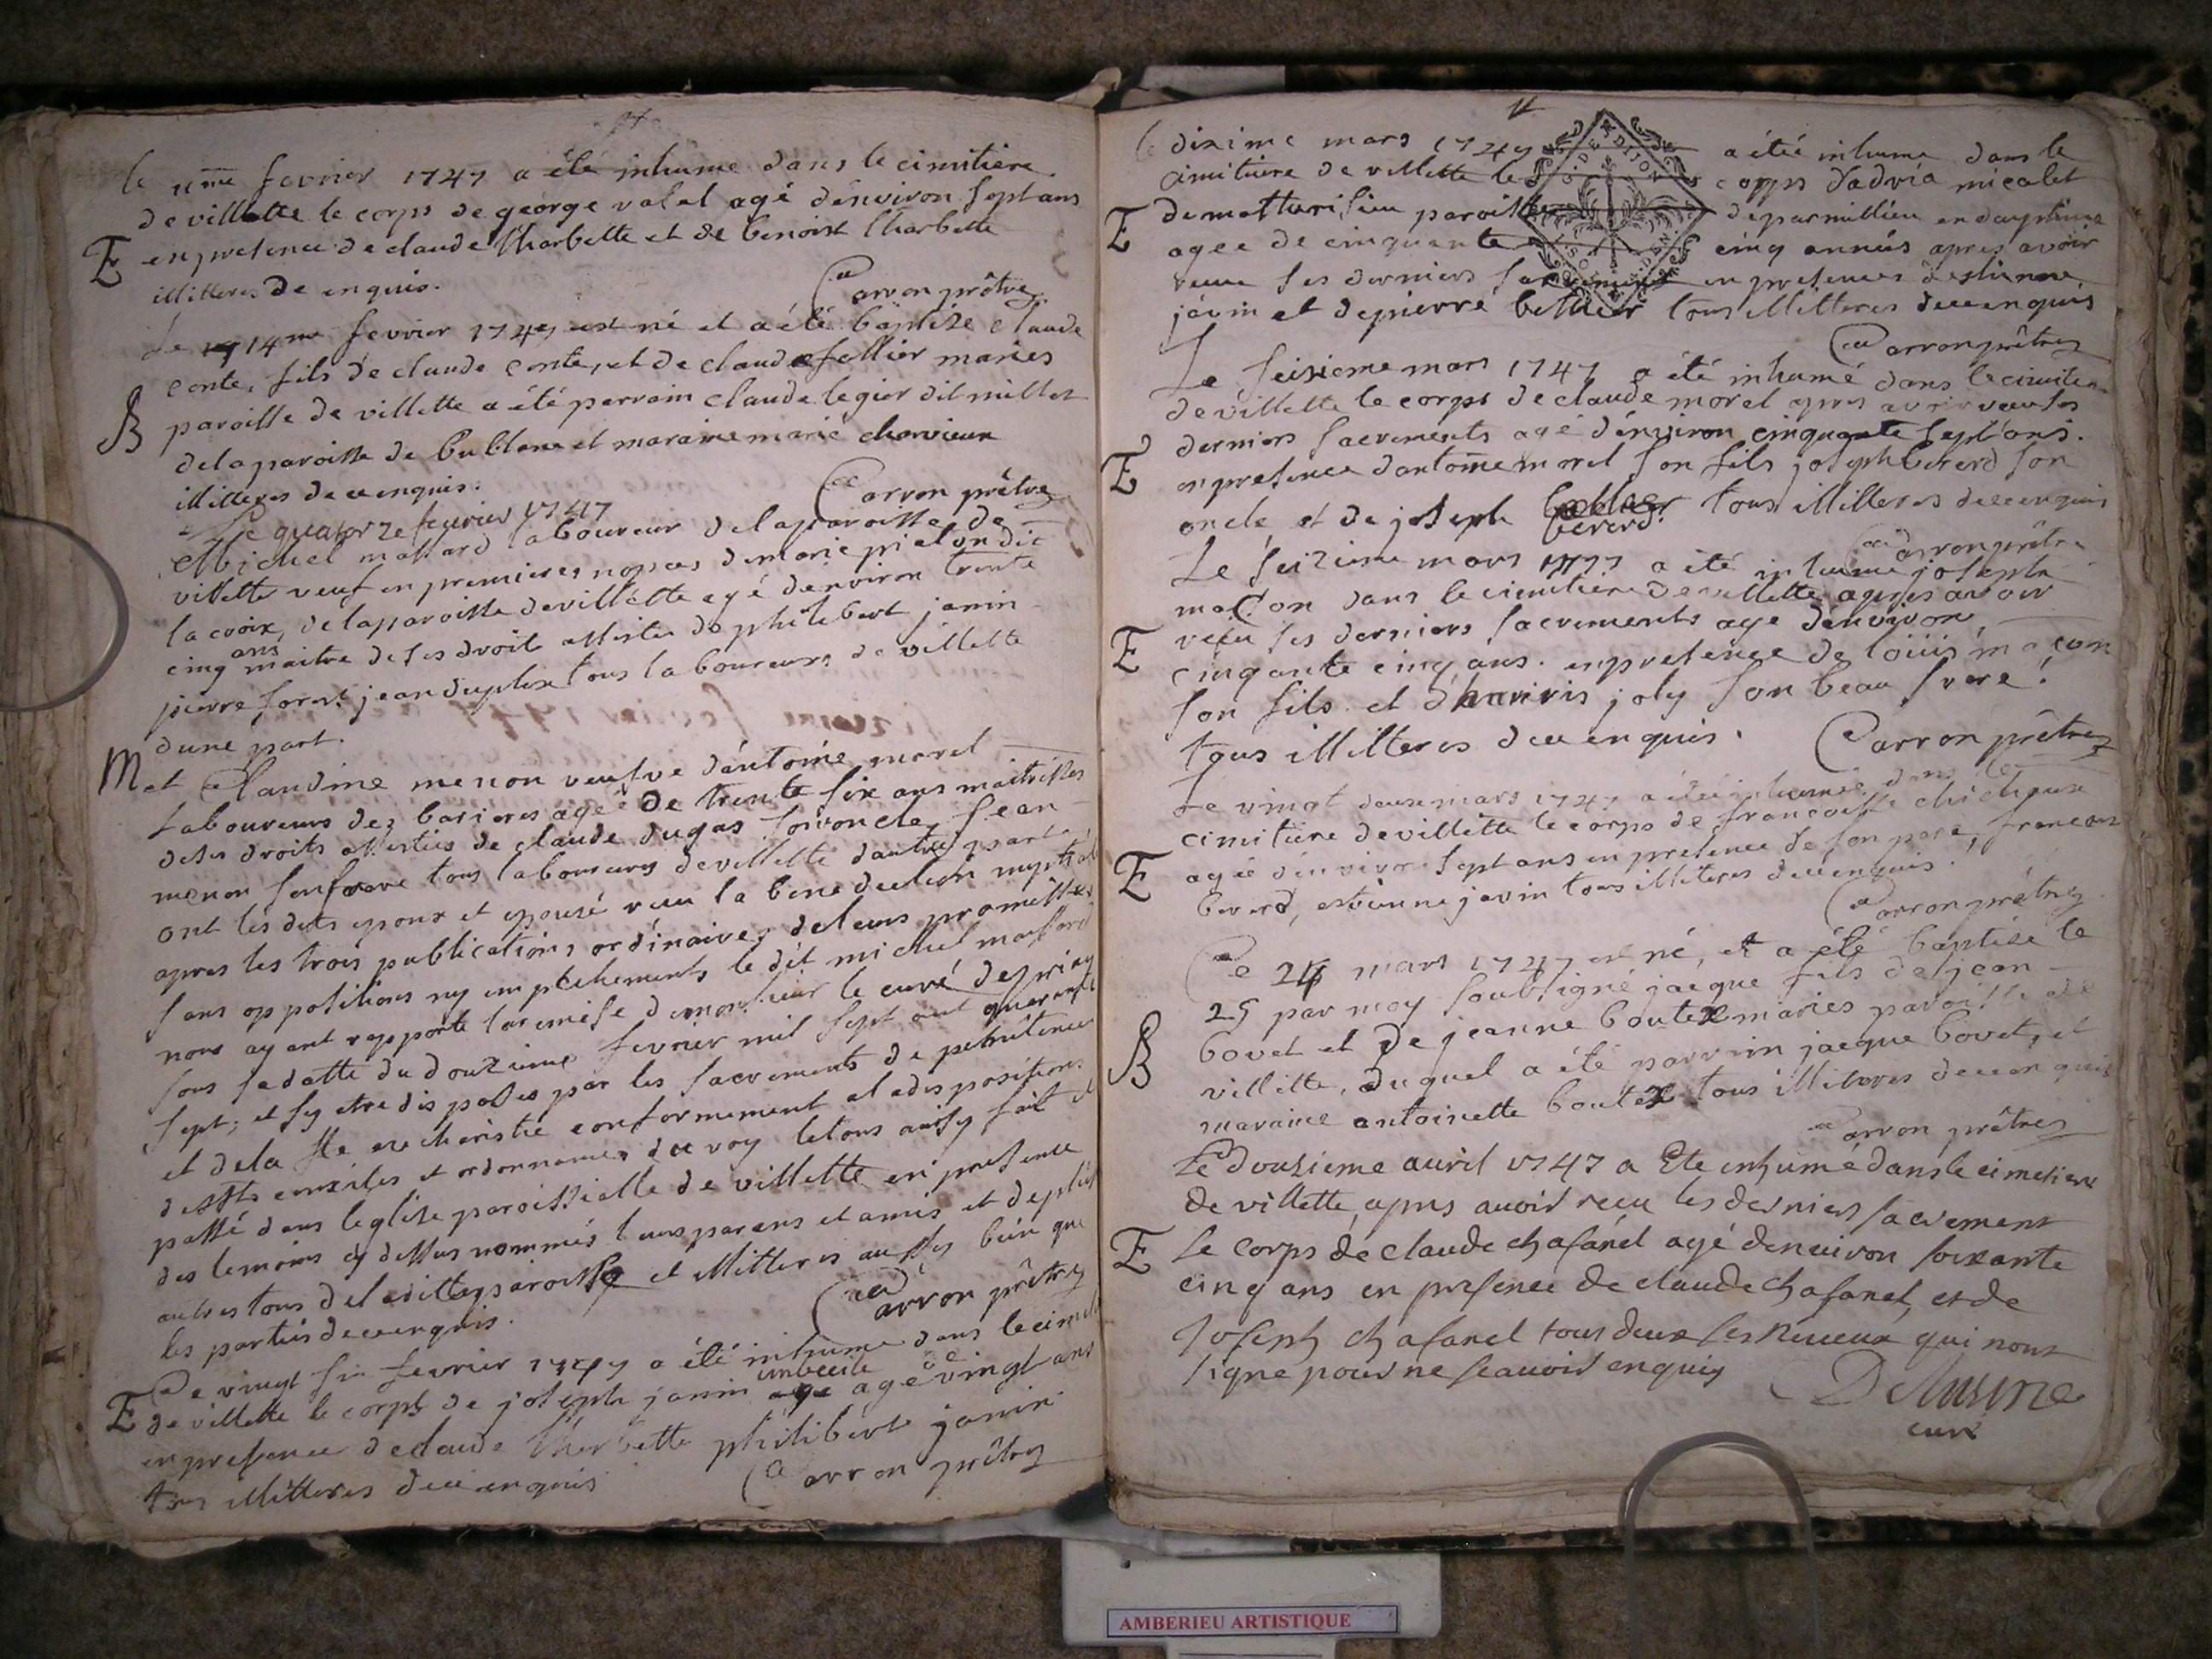 le 11me fevrier 1747 a été inhume dans le cimitiere
de villette le corps de george valat agé denviron sept ans
E en presence de claude tharbette et de benoist tharbette
illitteres de enquis.
Carron prêtre
Le 14me fevrier 1747 est né et a été baptize claude
conte, fils de claude conte, et de claudefollier maries
B paroisse de villette a été parrain claude legier dit millet
de la paroisse de bublane et maraine marie charvieux
illitteres deuenquis.
Carron prêtre
Le quatorze feurier 1747
Michel massard laboureur de la paroisse de
villette veuf en premieres nopces de marie
la croix, de la paroisse de villette agé denviron trente
ans
cinq maitre de ses droits assistes de philebert janin
pierre forat jean duplex tous laboureurs de villette
dune part.
M et Claudine menon veufve dantoine morel
Laboureurs des barieres agée de trente six ans maitresses
de ses droits assisties de claude dugas son oncle, Jean
menon son frere tous laboureurs de villette dautre part
ont lesdits epoux et epouzé receu la benediction nuptiale
apres les trois publications ordinaires de leurs promesses
sans oppositions ny empechements le dit michel massard
nous ayant rapporté la remise de monsieur le curé de priay
sous sa datte du douzieme fevrier mil sept cent quarante
sept; et sy etre disposes par les sacrements de penitence
et de la Ste eucharistie conformement a la dispositions
des Sts conciles et ordonnances du roy letous ainsy fait et
passé dans leglise paroissielle de villette en presence
des temoins cy dessus nommés leurs parens et amis et de plusi
autres tous de la ditte paroisse et illitteres aussy bien que
les parties deuenquis.
Carron prêtre
Le vingt six fevrier 1747 a été inhume dans le cimet
imbecile
E de villette le corps de joseph janin agé vingt ans
en presence de claude tharbette philibert janin
tous illitteres deuenquis
Carron prêtre
le dixime mars 1747 a étée inhume dans le
cimitiere de villette le corps dadria micalet
E de paroisse de parmillieu en dauphine
agee de cinquante cinq années apres avoir
receu ses derniers sacrements en presences destienne
javin et de pierre bettier tous illitteres deuenquis
Carron prêtre
Le seisieme mars 1747 a été inhumé dans le cimitier
de villette le corps de claude morel apres avoir receu ses
E derniers sacrements agé denviron cinquante sept ans.
en presence dantoine morel son fils joseph bererd son
oncle et de joseph bererd tous illitteres deuenquis
Carron prêtre
Le seizieme mars 1747 a été inhume joseph
maçon dans le cimitiere de villette apres avoir
E receu ses derniers sacrements age denviron
cinqante cinq ans. en presence de loüis maçon
son fils et joly son beau frere.
tous illitteres deuenquis.
Carron prêtre
Le vingt deux mars 1747 a étée inhumée dans le
cimitiere de villette le corps de francoise chichoux
E agée denviron sept ans en presence de son pere, francois
berard, estienne javin tous illitteres deuenquis.
Carron prêtre
Le 24 mars 1747 est né, et a été baptisé le
25 par moy soubsigné jacque fils de jean
B bovet et de jeanne boutex maries paroisse de
villette, duquel a été parrin jacque bovet, et
maraine antoinette boutex tous illiteres deuenquis
Carron prêtre
Le douzieme auril 1747 a Ete inhumé dans le cimetiere
de villette, apres auoir receu les derniers sacrement
E Le corps de claude chafanel agé denuiron soixante
cinq ans en presence de claude chafanel, et de
Joseph chafanel tous deux ses neueux qui nont
signe pour ne scauoir enquis
Delusine
curé
G. DE DIJON
AMBERIEU ARTISTIQUE